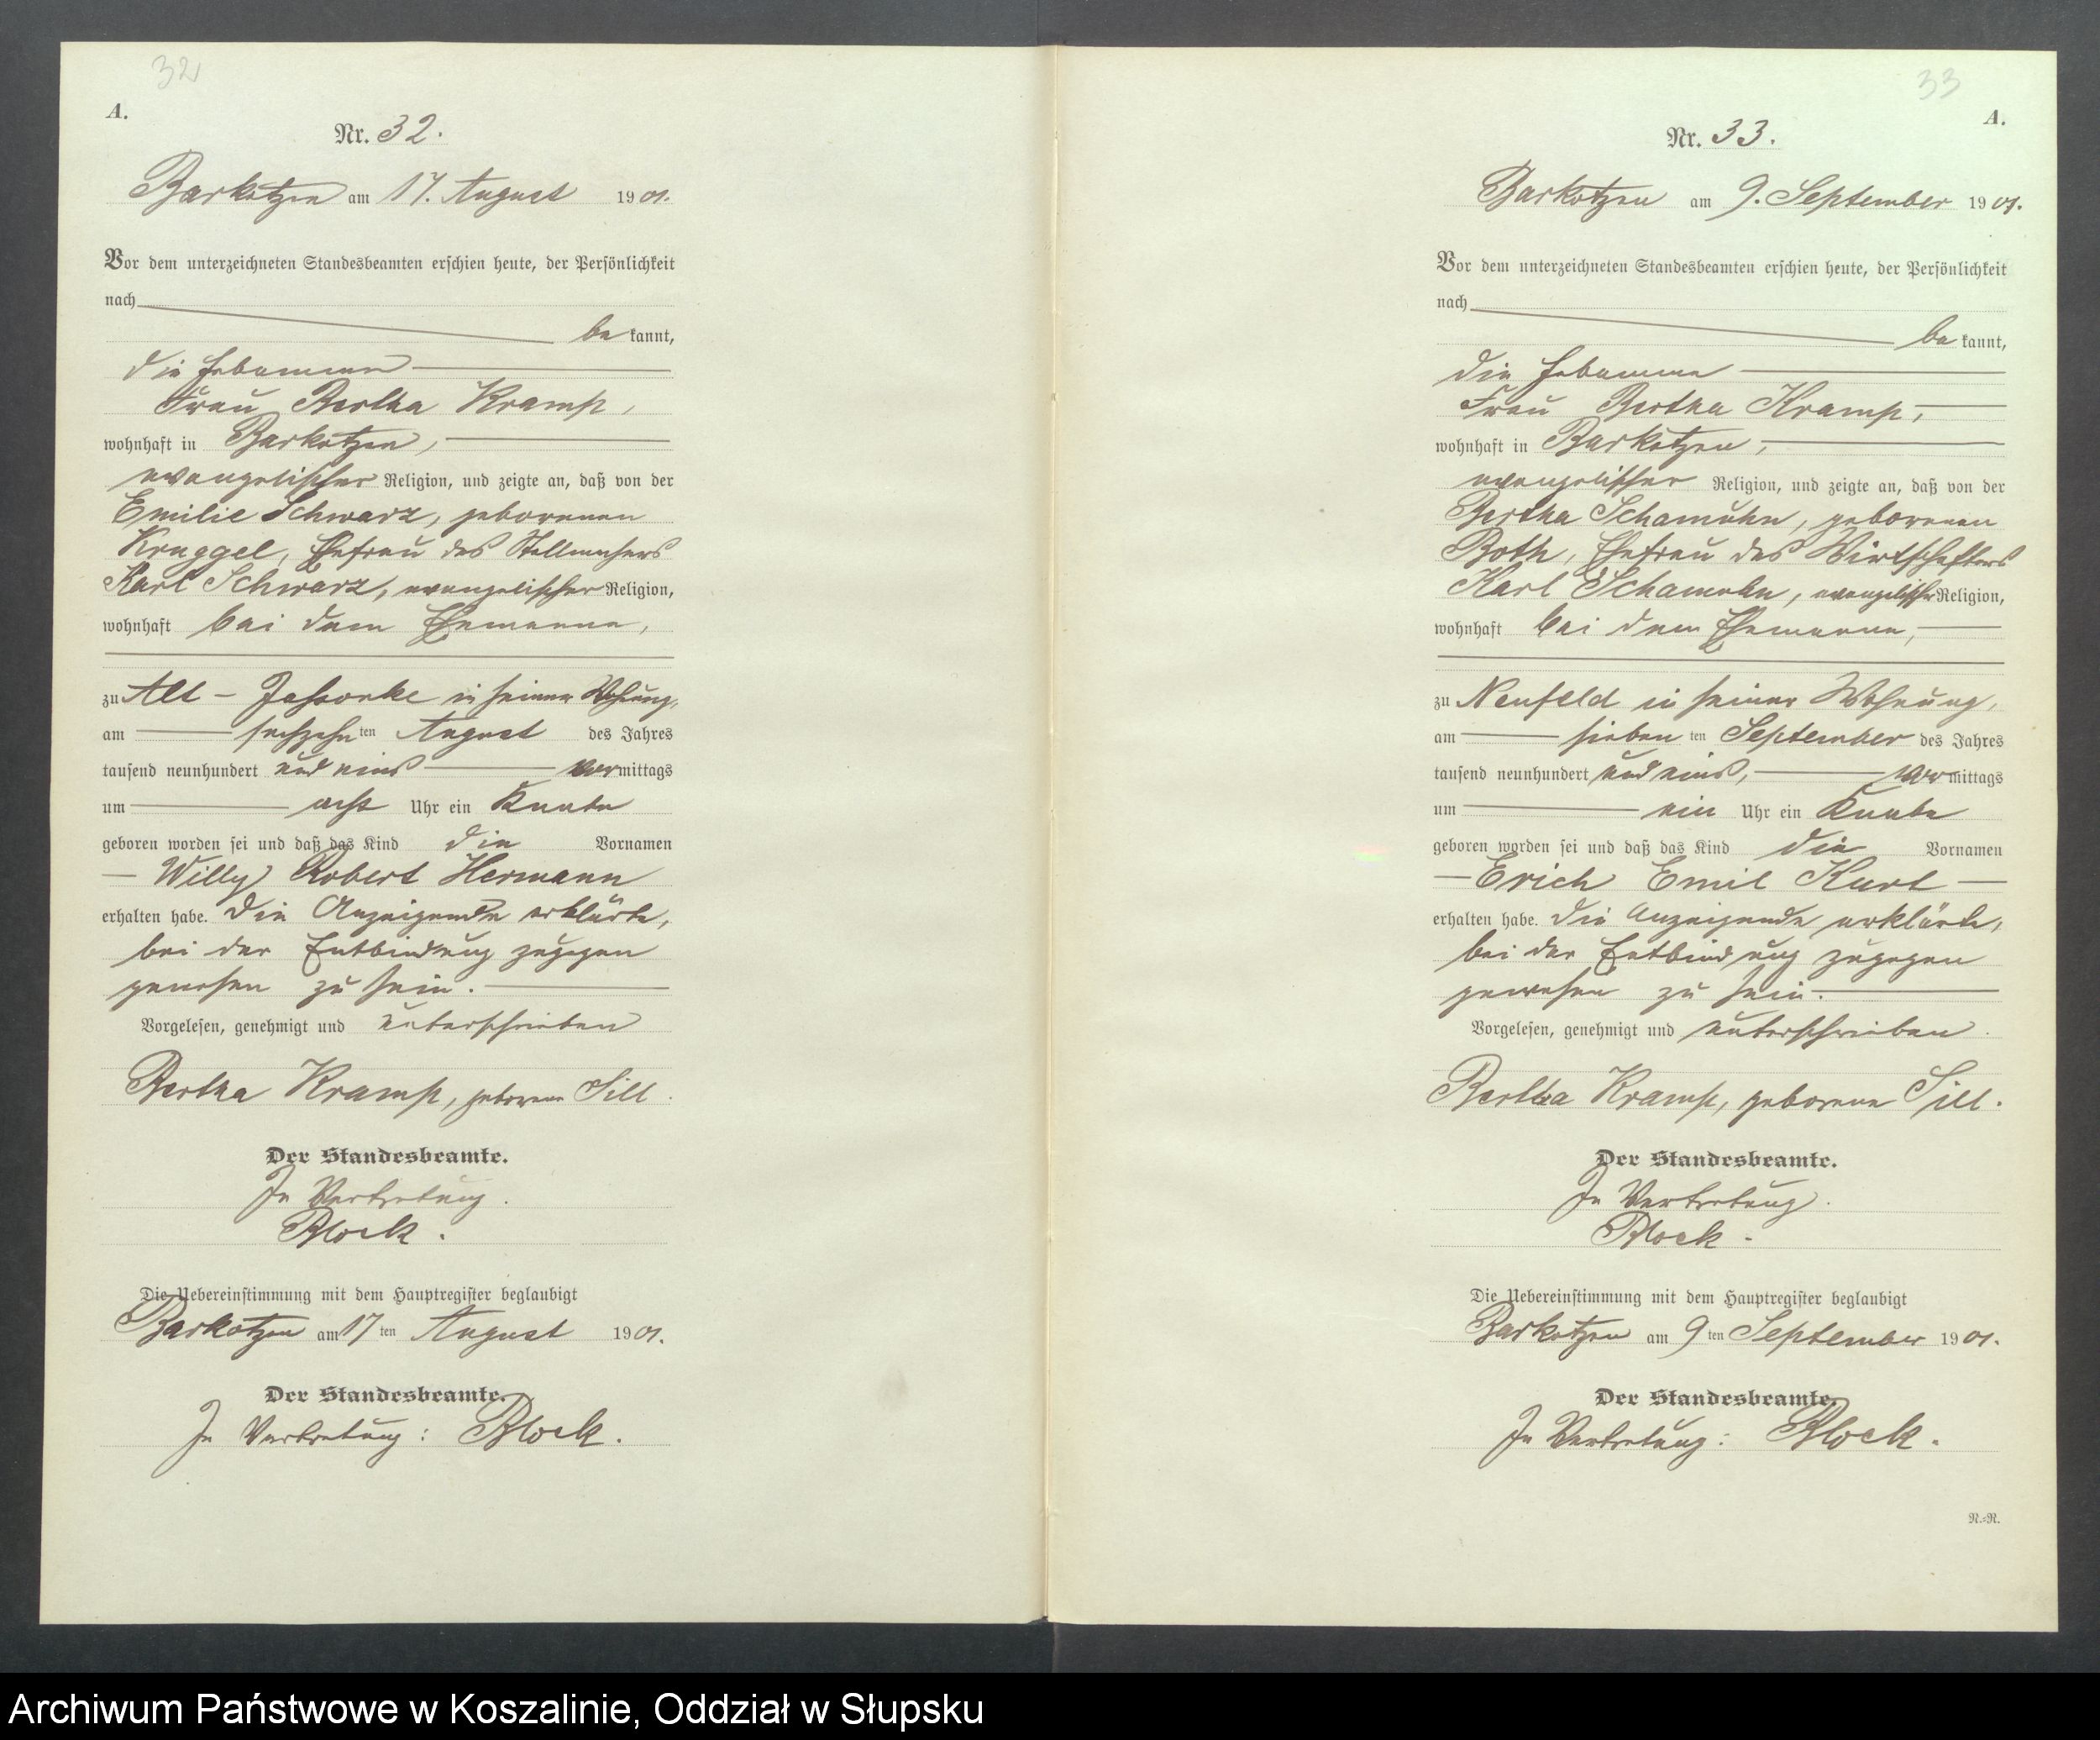 32
A.
Nr. 32.
Barkotzen am 17. August 1901.
Vor dem unterzeichneten Standesbeamten erschien heute, der Persönlichkeit
nach
be kannt,
die Hebamme
Frau Bertha Kramp,
wohnhaft in Barkotzen,
evangelischer Religion, und zeigte an, daß von der
Emilie Schwarz, geborenen
Kruggel, Ehefrau des Stellmachers
Karl Schwarz, evangelischer Religion,
wohnhaft bei dem Ehemanne,
zu Alt - Jassonke in seiner Wohnung,
am sechzehn ten August des Jahres
tausend neunhundert und eins vormittags
um acht Uhr ein Knabe
geboren worden sei und daß das Kind die Vornamen
Willy Robert Hermann
erhalten habe. Die Anzeigende erklärte,
bei der Entbindung zugegen
gewesen zu sein.
Vorgelesen, genehmigt und unterschrieben
Bertha Kramp, geborene Sill.
Der Standesbeamte.
In Vertretung.
Block.
Die Uebereinstimmung mit dem Hauptregister beglaubigt
Barkotzen am 17 ten August 1901.
Der Standesbeamte.
In Vertretung: Block.
33
A.
Nr. 33.
Barkotzen am 9. September 1901.
Vor dem unterzeichneten Standesbeamten erschien heute, der Persönlichkeit
nach
be kannt,
die Hebamme
Frau Bertha Kramp,
wohnhaft in Barkotzen,
evangelischer Religion, und zeigte an, daß von der
Bertha Schamuhn, geborenen
Both, Ehefrau des Wirtschafters
Karl Schamuhn, evangelischer Religion,
wohnhaft bei dem Ehemanne,
zu Neufeld in seiner Wohnung,
am sieben ten September des Jahres
tausend neunhundert und eins, vormittags
um ein Uhr ein Knabe
geboren worden sei und daß das Kind die Vornamen
Erich Emil Kurt
erhalten habe. Die Anzeigende erklärte,
bei der Entbindung zugegen
gewesen zu sein.
Vorgelesen, genehmigt und unterschrieben.
Bertha Kramp, geborene Sill.
Der Standesbeamte.
In Vertretung.
Block.
Die Uebereinstimmung mit dem Hauptregister beglaubigt
Barkotzen am 9 ten September 1901.
Der Standesbeamte.
In Vertretung: Block.
N.=R.
Archiwum Państwowe w Koszalinie, Oddział w Słupsku